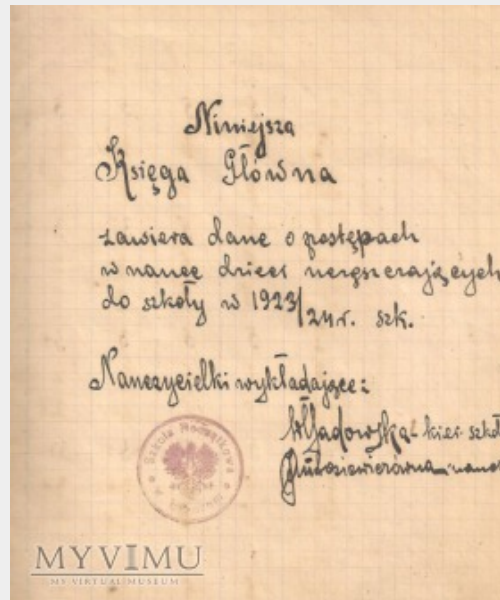 Niniejsza
Księga Główna
zawiera dane o postępach
w nauce dzieci uczęszczających
do szkoły w 1923/24 r. szk.
Nauczycielki wykładające:
kier. szkoł
Szkoła
MYVIMU
MY VIRTUAL MUSEUM